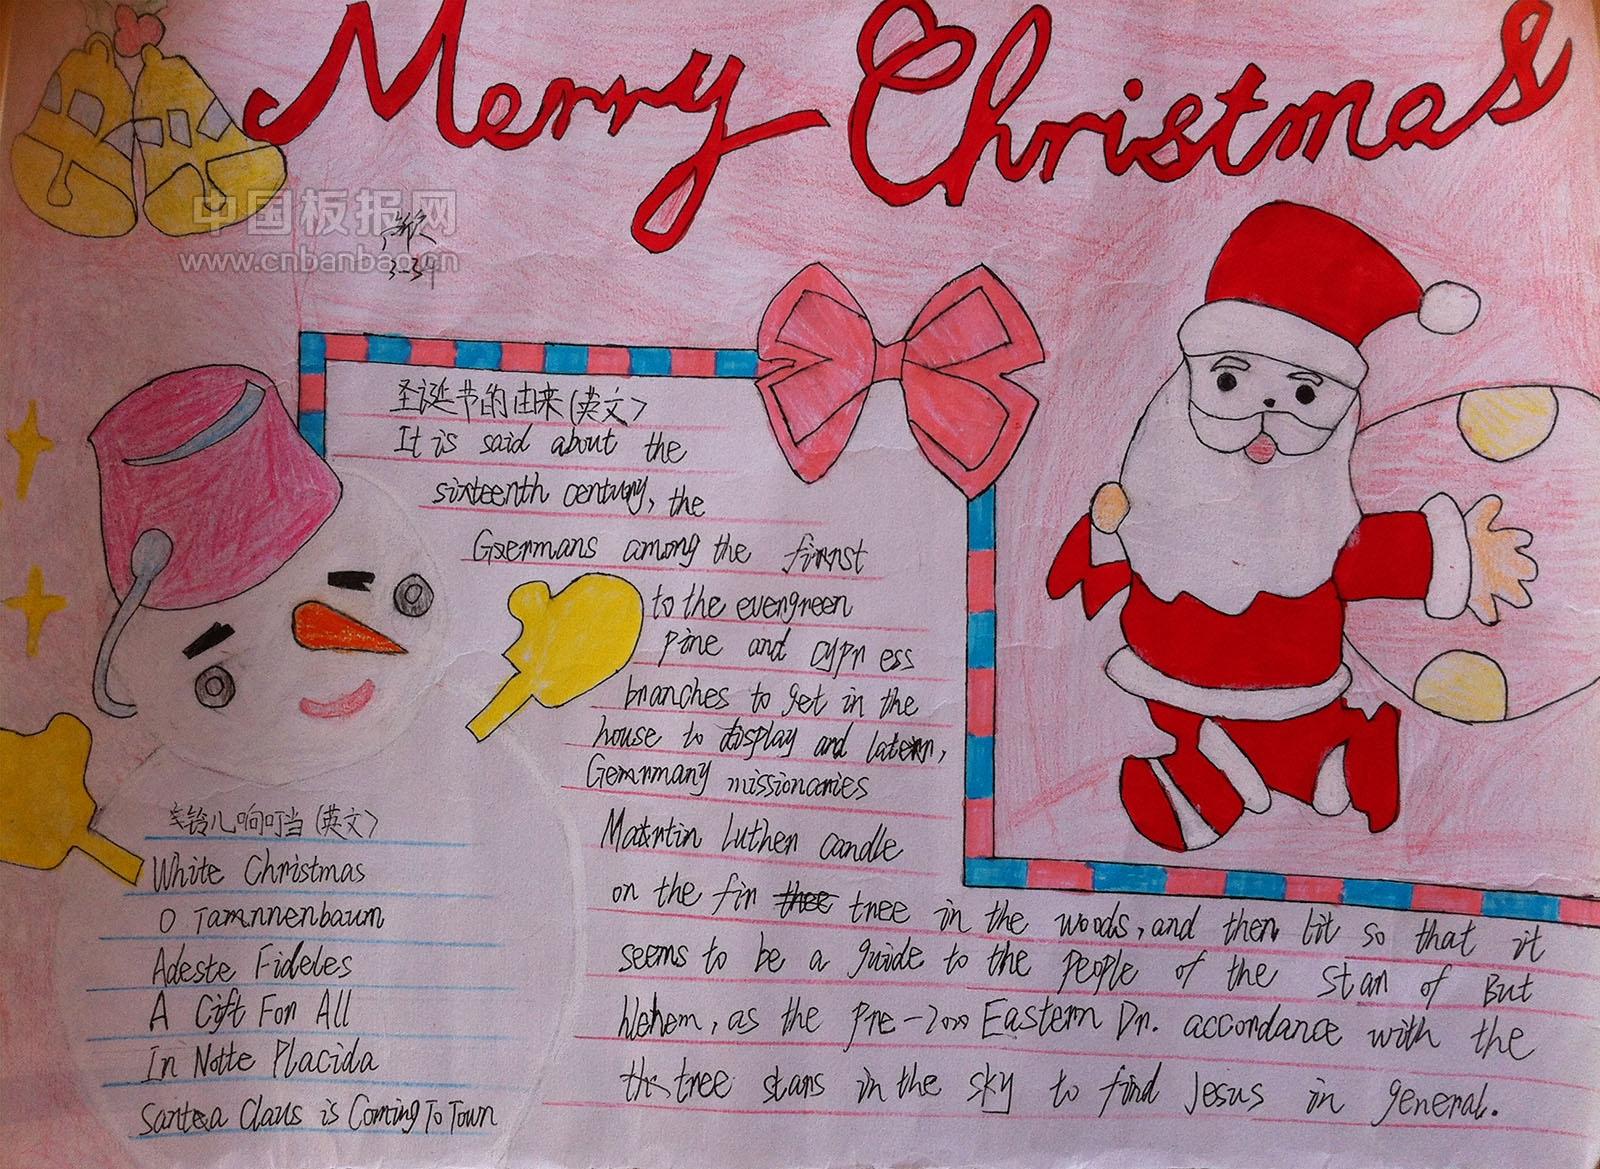 Merry Christmas
中国板报网
www.cnbanbao.cn
3-34
圣诞节的由来(英文)
It is said about the
sixteenth century, the
Germans among the first
to the evergreen
pine and cypress
branches to get in the
house to display and later,
Germany missionaries
Martin Luther candle
on the fir tree in the woods, and then lit so that it
seems to be a guide to the people of the star of But
hlehem, as the pre-2000 Eastern Dr. accordance with the
tree stars in the sky to find Jesus in general.
铃儿响叮当(英文)
White Christmas
O Tannenbaum
Adeste Fideles
A Gift For All
In Notte Placida
Santa Claus is Coming To Town